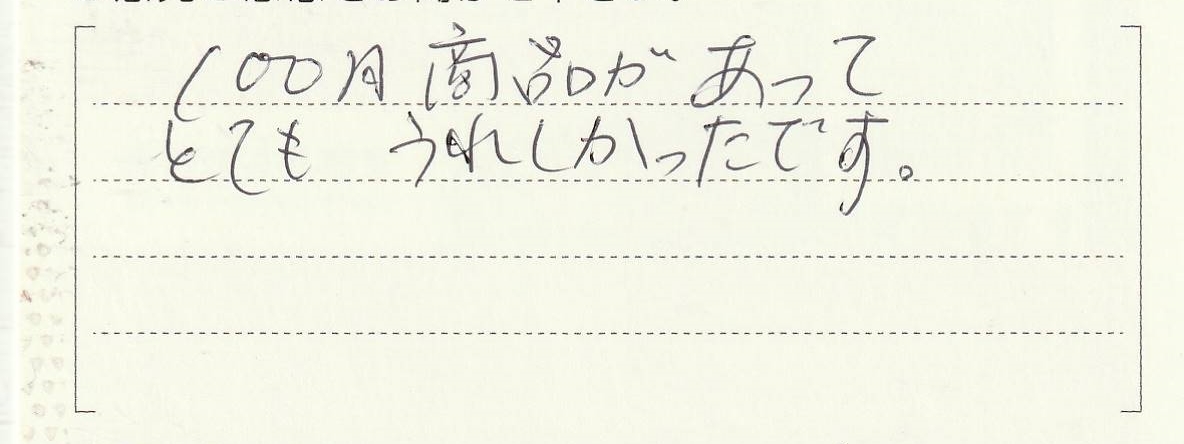 100円商品があって
とても うれしかったです。